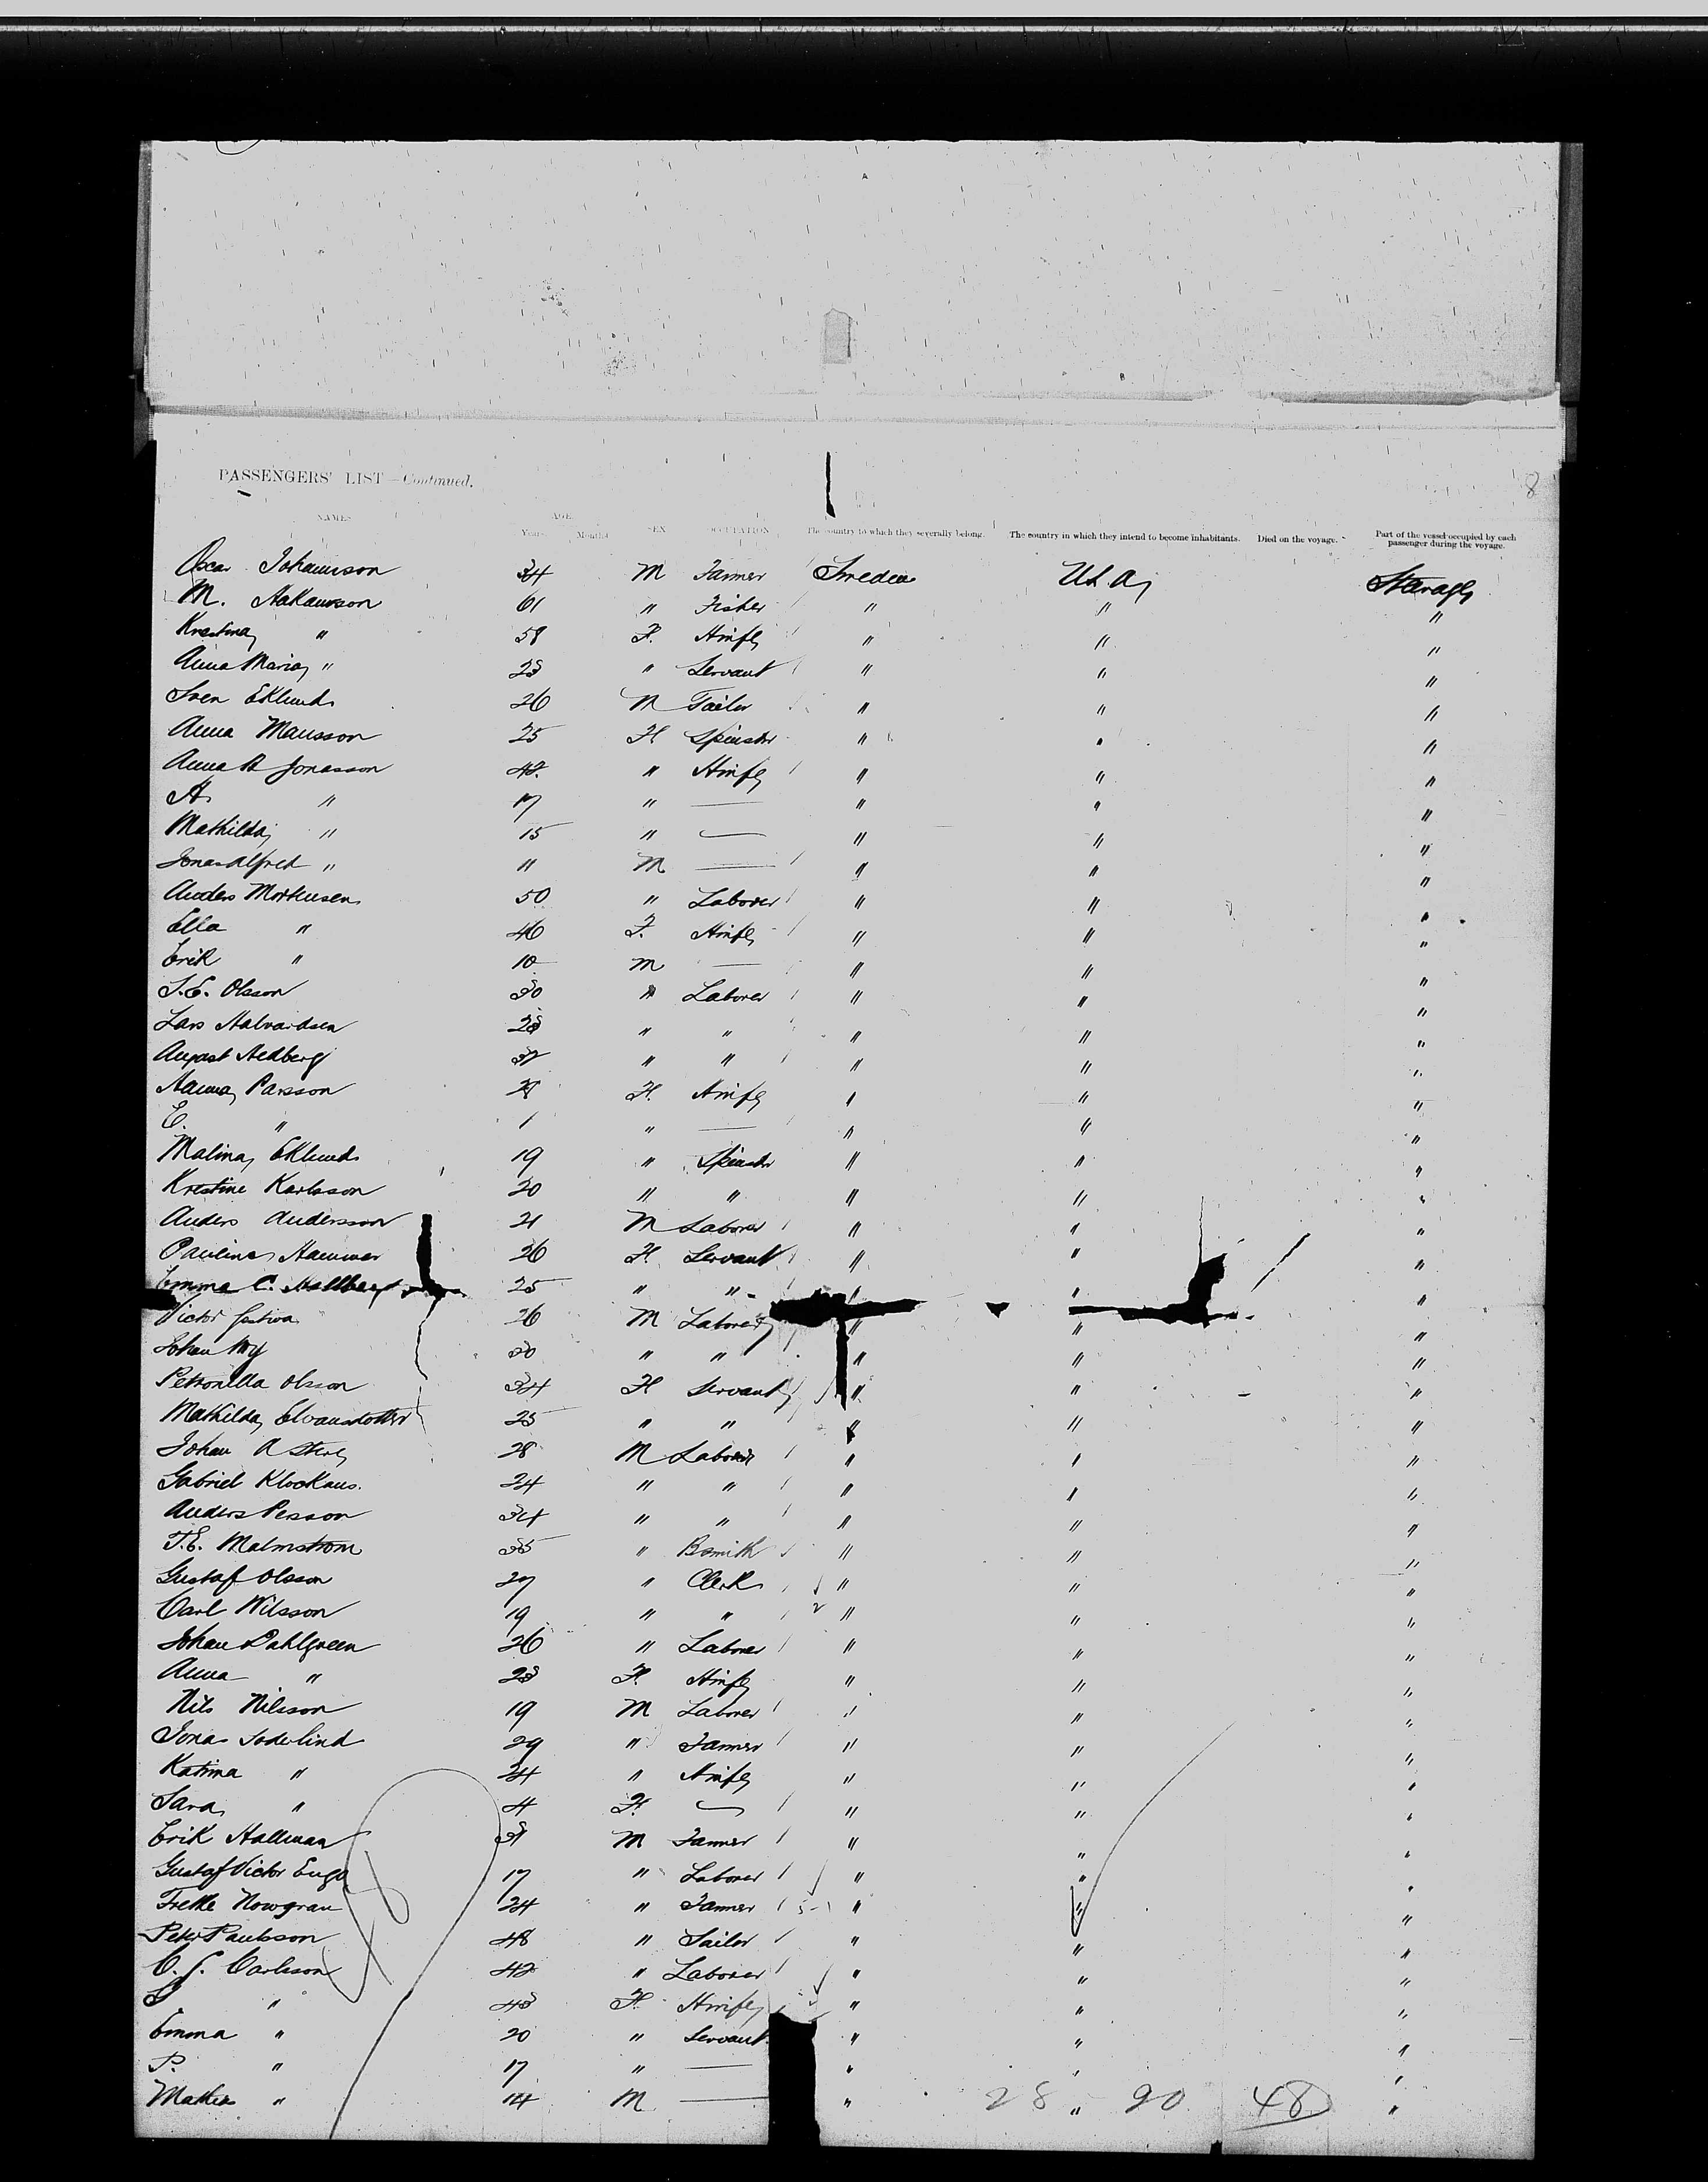 PASSENGERS' LIST—Continued.
8
NAMES AGE Years Months SEX OCCUPATION The country to which they severally belong. The country in which they intend to become inhabitants. Died on the voyage. Part of the vessel occupied by each passenger during the voyage.
Oscar Johannson 34 M Farmer Sweden U.S.A. Steerage
M. Hakansson 61 " Fisher " " "
Krestina " 58 F. Hwife " " "
Anna Maria " 23 " Servant " " "
Sven Eklund 26 M Tailor " " "
Anna Mansson 25 F Spinster " " "
Anna B Jonasson 42 " Hwife " " "
A. " 17 " — " " "
Mathilda " 15 " — " " "
Jonas Alfred " 11 M — " " "
Anders Mortensen 50 " Laborer " " "
Ella " 46 F. Hwife " " "
Erik " 10 M — " " "
S.E. Olsson 30 " Laborer " " "
Lars Halvardsen 23 " " " " "
August Hedberg 32 " " " " "
Hanna Parsson 28 F. Hwife " " "
E. " 1 " — " " "
Malina Eklund 19 " Spinster " " "
Krestine Karlsson 20 " " " " "
Anders Andersson 21 M Laborer " " "
Pauline Hammer 26 F. Servant " " "
Emma C. Hallberg 25 " " " " "
Victor 26 M Laborer " " "
Johan Ny 30 " " " " "
Petronilla Olsson 34 F Servant " " "
Mathilda 25 " " " " "
Johan A 28 M Laborer " " "
Gabriel Klockaus. 24 " " " " "
Anders Persson 34 " " " " "
T.E. Malmstrom 35 " Bsmith " " "
Gustaf Olsson 27 " Clerk " " "
Carl Nilsson 19 " " " " "
Johan Dahlgreen 26 " Laborer " " "
Anna " 23 F. Hwife " " "
Nils Nilsson 19 M Laborer " " "
Jonas Soderlind 29 " Farmer " " "
Katrina " 24 " Hwife " " "
Sara " 4 F. — " " "
Erik Hallman 31 M Farmer " " "
Gustaf Victor 17 " Laborer " " "
Nowgran 24 " Farmer " " "
Peter Paulsson 48 " Sailor " " "
C. J. Carlsson 42 " Laborer " " "
" 43 F. Hwife " " "
Emma " 20 " Servant " " "
P. " 17 " — " " "
" 14 M — " " "
28 20 48